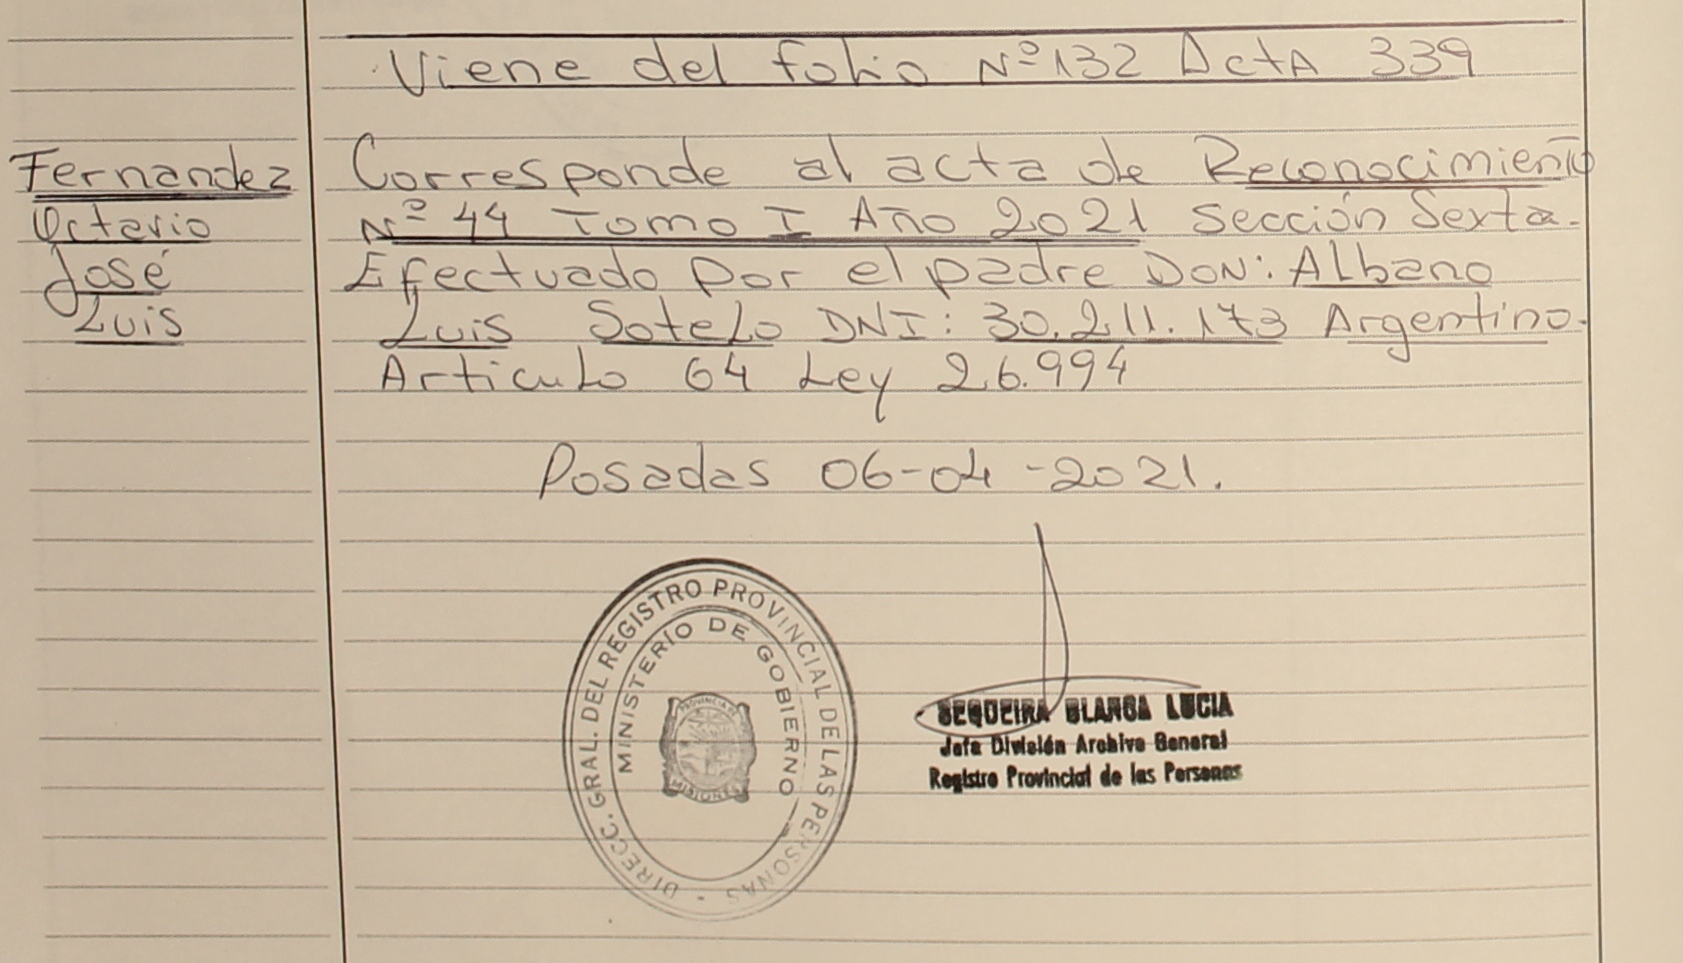 Viene del folio Nº 132 Acta 339
Fernandez
Octavio
José
Luis
Corresponde al acta de Reconocimiento
Nº 44 Tomo I Año 2021 Sección Sexta.
Efectuado por el padre DON: Albano
Luis Sotelo DNI: 30.211.173 Argentino.
Articulo 64 Ley 26.994
Posadas 06-04-2021.
DIRECC. GRAL. DEL REGISTRO PROVINCIAL DE LAS PERSONAS
MINISTERIO DE GOBIERNO
PROVINCIA DE
MISIONES
SEQUEIRA BLANCA LUCIA
Jefa División Archivo General
Registro Provincial de las Personas